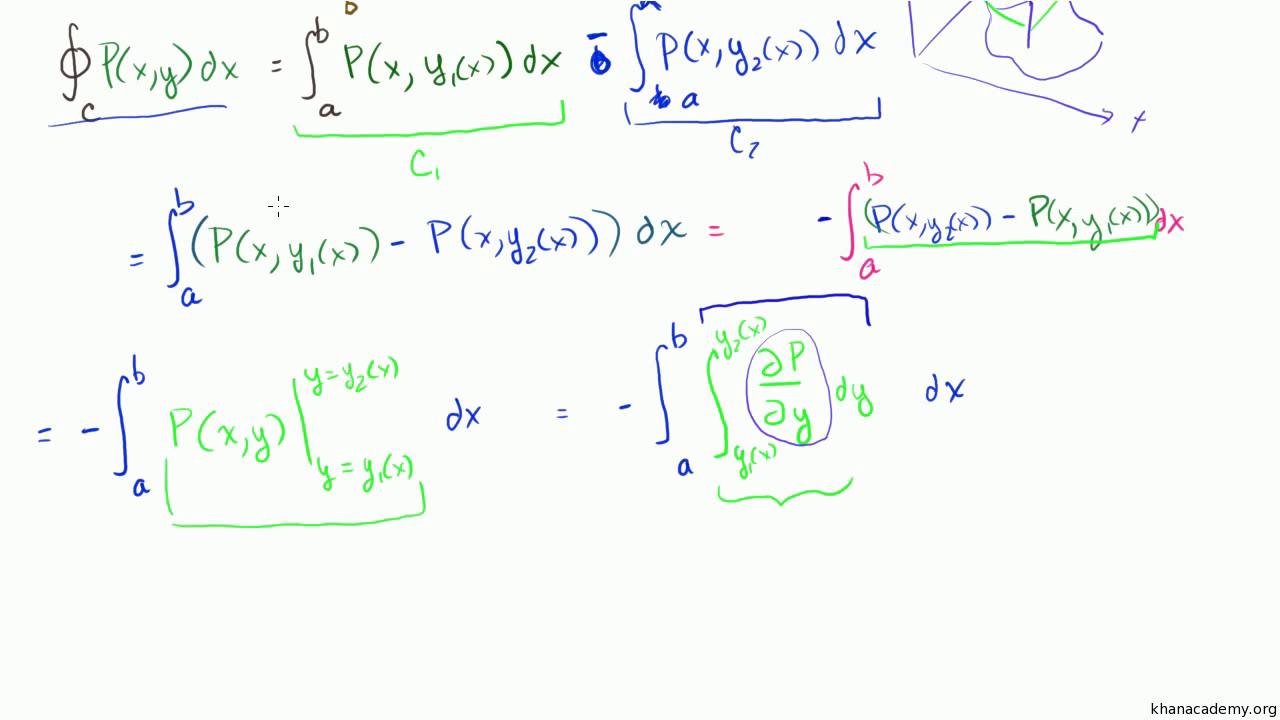 ∮_C P(x,y) dx = ∫_a^b P(x, y₁(x)) dx - ∫_a P(x, y₂(x)) dx
x
C₁
C₂
= ∫_a^b (P(x, y₁(x)) - P(x, y₂(x))) dx = -∫_a^b (P(x,y₂(x)) - P(x,y₁(x))) dx
= -∫_a^b P(x,y) |_{y = y₁(x)}^{y = y₂(x)} dx = -∫_a^b ∫_{y₁(x)}^{y₂(x)} ∂P/∂y dy dx
khanacademy.org